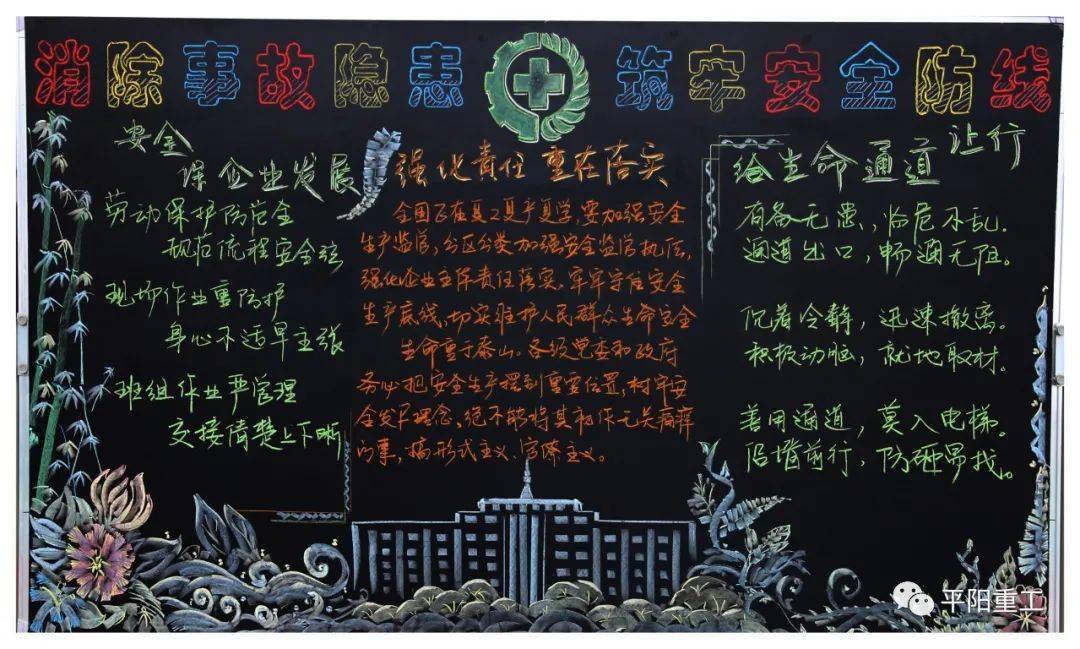 消除事故隐患 筑牢安全防线
安全
保企业发展
劳动保护防范全
规范流程安全弦
现场作业重防护
身心不适早主张
班组作业严管理
交接清楚上下晰
强化责任 重在落实
全国正在复工复产复学，要加强安全
生产监管，分区分类加强安全监管执法，
强化企业主体责任落实，牢牢守住安全
生产底线，切实维护人民群众生命安全
生命重于泰山。各级党委和政府
务必把安全生产摆到重要位置，树牢安
全发展理念，绝不能将其视作无关痛痒
的事，搞形式主义、官僚主义。
给生命通道让行
有备无患，临危不乱。
通道出口，畅通无阻。
沉着冷静，迅速撤离。
积极动脑，就地取材。
善用通道，莫入电梯。
沿墙前行，防砸易找。
平阳重工